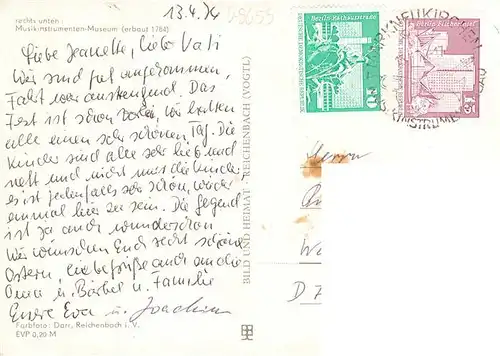 rechts unten:
Musikinstrumenten-Museum (erbaut 1784)
13.4.74
Liebe Jeanette, lieber Vati
Wir sind gut angekommen,
Fahrt war anstrengend. Das
Fest ist schon vorbei, wir hatten
alle einen sehr schönen Tag. Die
Kinder sind alle sehr lieb und
nett und nicht nur die Kinder
es ist jedenfalls sehr schön, wieder
einmal hier zu sein. Die Gegend
ist ja auch wunderschön
Wir wünschen Euch recht schöne
Ostern, liebe Grüße auch an die
Oma u. Bärbel u. Familie
Eure Eva u. Joachim
Farbfoto: Darr, Reichenbach i. V.
EVP 0,20 M
BILD UND HEIMAT · REICHENBACH (VOGTL)
Berlin, Rathausstraße
10
MARKNEUKIRCHEN
Herrn
D 7